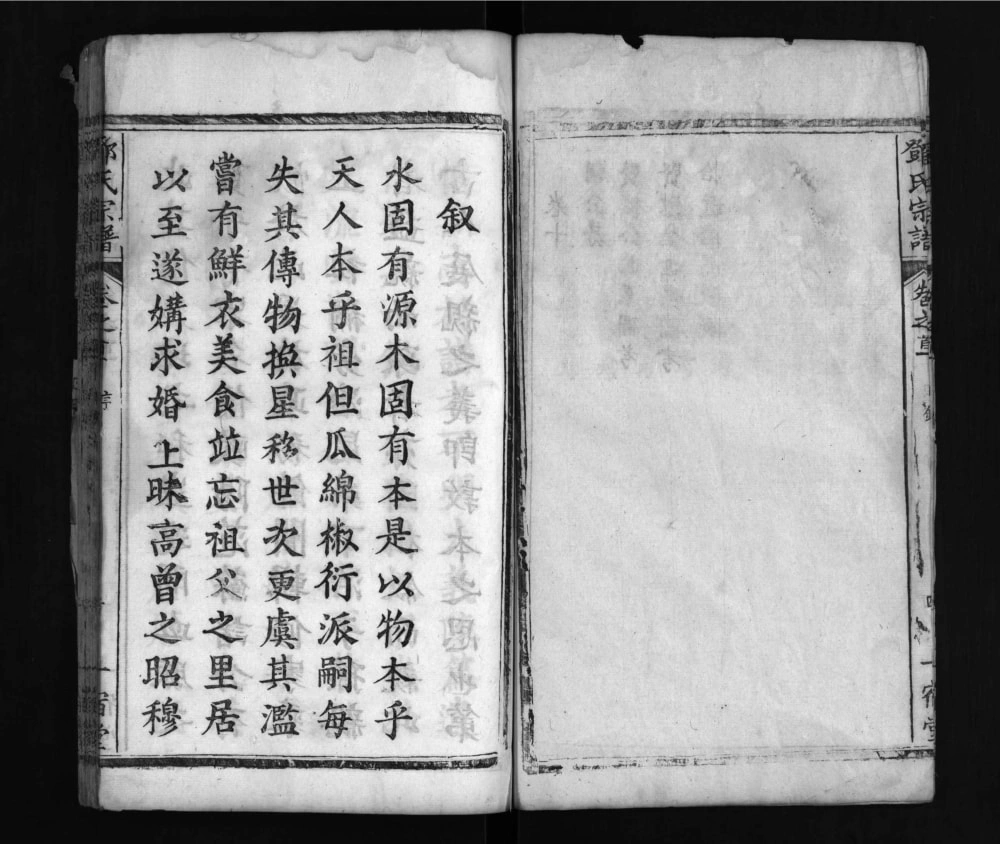 鄧氏宗譜
卷之首
一宿堂
叙
水固有源木固有本是以物本乎
天人本乎祖但瓜綿椒衍派嗣每
失其傳物換星移世次更虞其濫
嘗有鮮衣美食竝忘祖父之里居
以至遂媾求婚上昧高曾之昭穆
鄧氏宗譜
卷之首
序
一宿堂